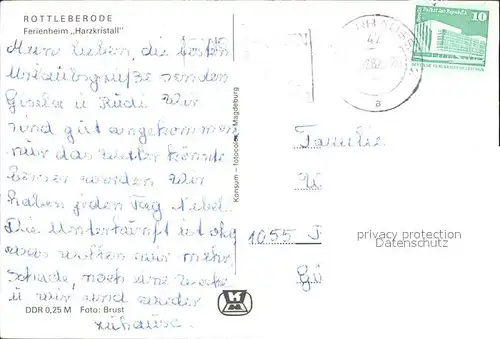 ROTTLEBERODE
Ferienheim „Harzkristall"
Ihr Lieben, die besten
Urlaubsgrüße senden
Gisela u Rudi Wir
sind gut angekommen
nur das Wetter könnte
besser werden Wir
haben jeden Tag Nebel.
Die Unterkunft ist okay
was wollen wir mehr
Schade, noch eine Woche
u wir sind wieder
zuhause.
DDR 0,25 M Foto: Brust
Konsum – fotocolor Magdeburg
47
a
10
Familie
1055
Gü
privacy protection
Datenschutz